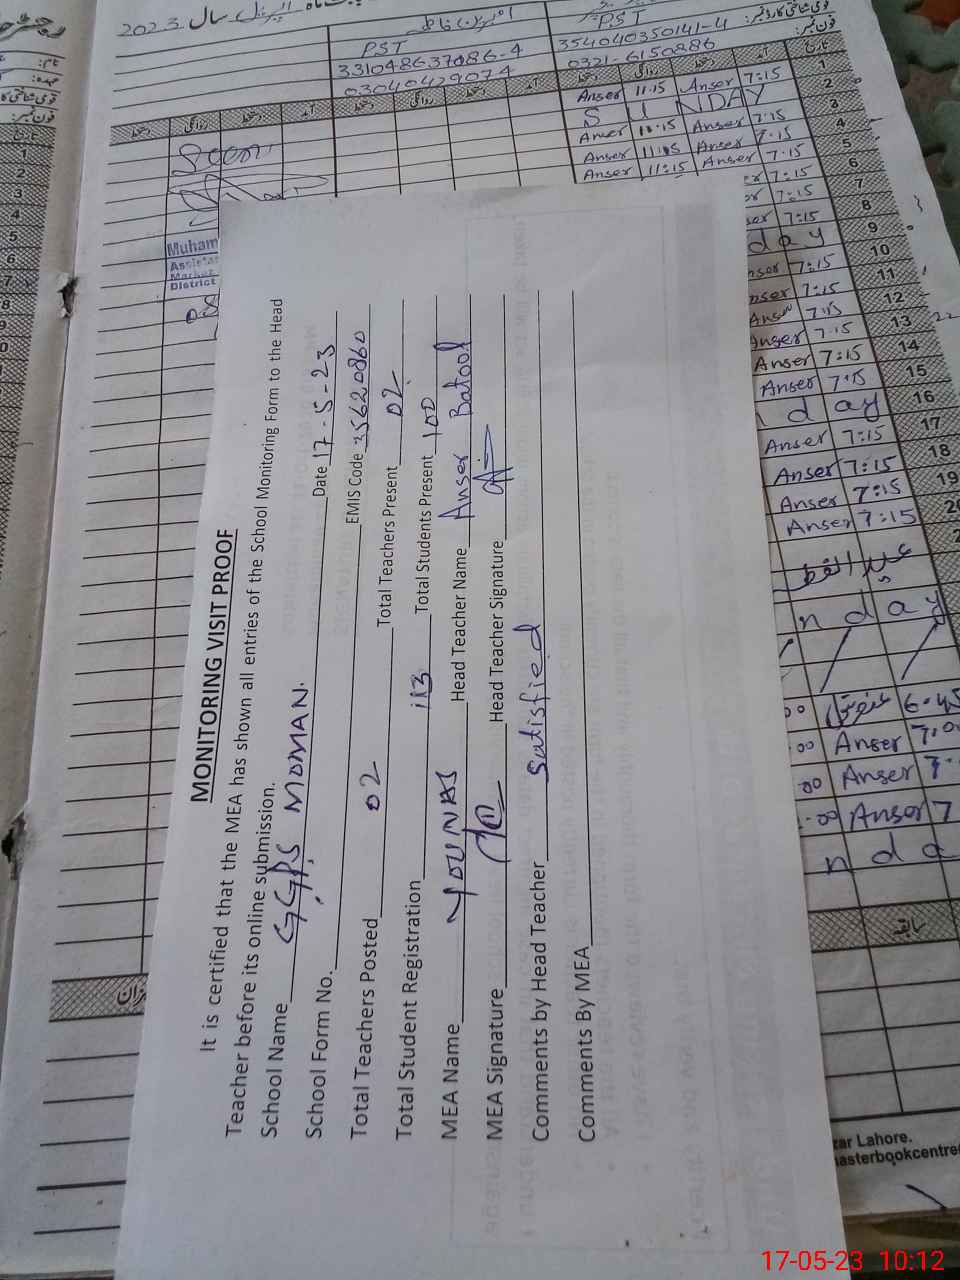 MONITORING VISIT PROOF
It is certified that the MEA has shown all entries of the School Monitoring Form to the Head
Teacher before its online submission.
School Name GGPS MOMAN. Date 17-5-23
School Form No. EMIS Code 35620860
Total Teachers Posted 02 Total Teachers Present 02
Total Student Registration 113 Total Students Present 100
MEA Name YOUNAS Head Teacher Name Anser Batool
MEA Signature Head Teacher Signature
Comments by Head Teacher Satisfied
Comments By MEA
2023 سال اپریل
PST PST
331048637086-4 354040350141-4
03040429074 0321-6150886
قومی شناختی کارڈ نمبر:
فون نمبر:
تاریخ
1 Anser 11:15 Anser 7:15
2 SUNDAY
3 Anser 11:15 Anser 7:15
4 Anser 11:15 Anser 7:15
5 Anser 11:15 Anser 7:15
6 7:15
7 7:15
8 7:15
9 day
10 7:15
11 7:15
12 Anser 7:15
13 Anser 7:15
14 Anser 7:15
15 Anser 7:15
16 day
17 Anser 7:15
18 Anser 7:15
19 Anser 7:15
20 Anser 7:15
عید الفطر
nday
6:45
00 Anser 7:00
00 Anser 7
:00 Anser 7
nda
سابقہ
Muham
Assistant
Market
District
zar Lahore.
asterbookcentre
17-05-23 10:12